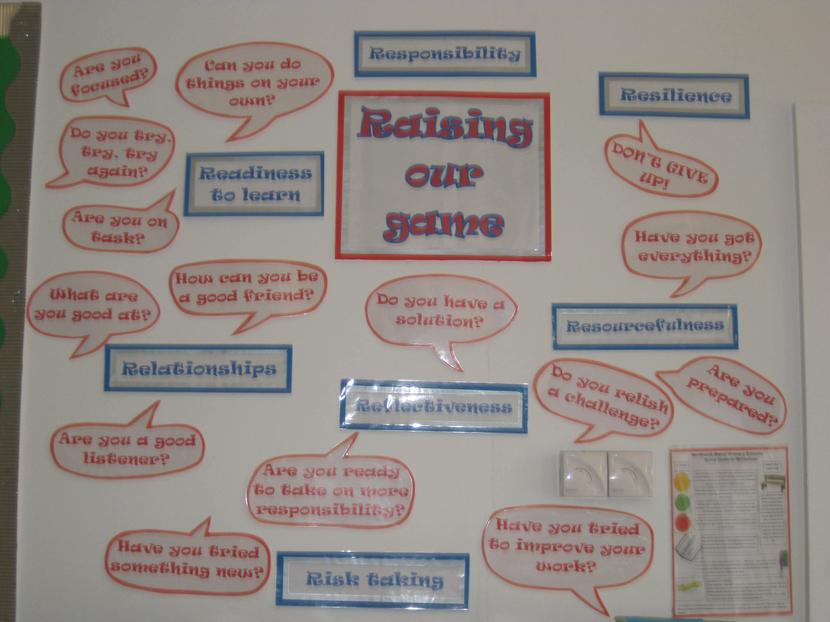 Responsibility
Are you
focused?
Can you do
things on your
own?
Resilience
Raising
our
game
Do you try,
try, try
again?
DON'T GIVE
UP!
Readiness
to learn
Are you on
task?
Have you got
everything?
How can you be
a good friend?
What are
you good at?
Do you have a
solution?
Resourcefulness
Relationships
Reflectiveness
Do you relish
a challenge?
Are you
prepared?
Are you a good
listener?
Are you ready
to take on more
responsibility?
Have you tried
something new?
Have you tried
to improve your
work?
Risk taking